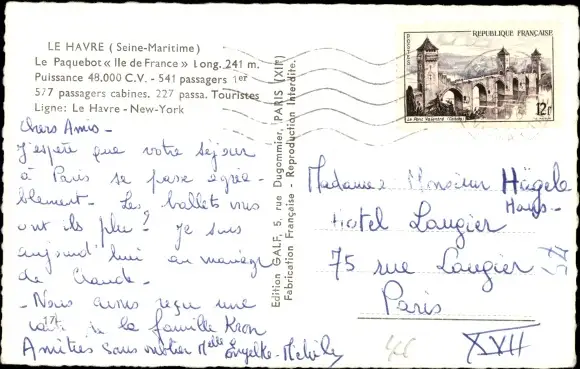 LE HAVRE (Seine-Maritime)
Le Paquebot « Ile de France » Long. 241 m.
Puissance 48.000 C.V. - 541 passagers 1er
577 passagers cabines. 227 passa. Touristes
Ligne: Le Havre - New-York
Chers Amis -
J'espère que votre séjour
à Paris se passe agréa-
blement - Les ballets vous
ont ils plu ? Je suis
aujourd'hui au mariage
de Claude -
- Nous avons reçu une
de la famille Kron
Amitiés sans oublier Melle Engelke - 
Edition GALF, 5, rue Dugommier, PARIS (XIIe)
Fabrication Française - Reproduction Interdite.
REPUBLIQUE FRANÇAISE
POSTES
Le Pont Valentré (Cahors)
12F
Madame & Monsieur Hägele
Hans -
Hotel Laugier
75 rue Laugier
Paris
XVII